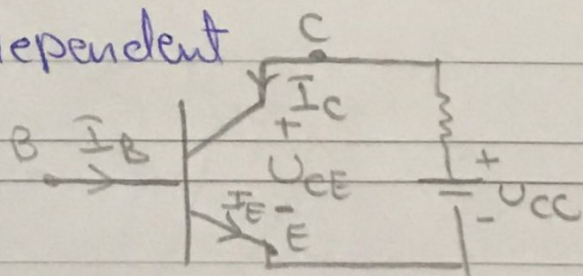 ependent
C
I_C
B I_B
+
U_CE
-
I_E
E
+
-
U_CC